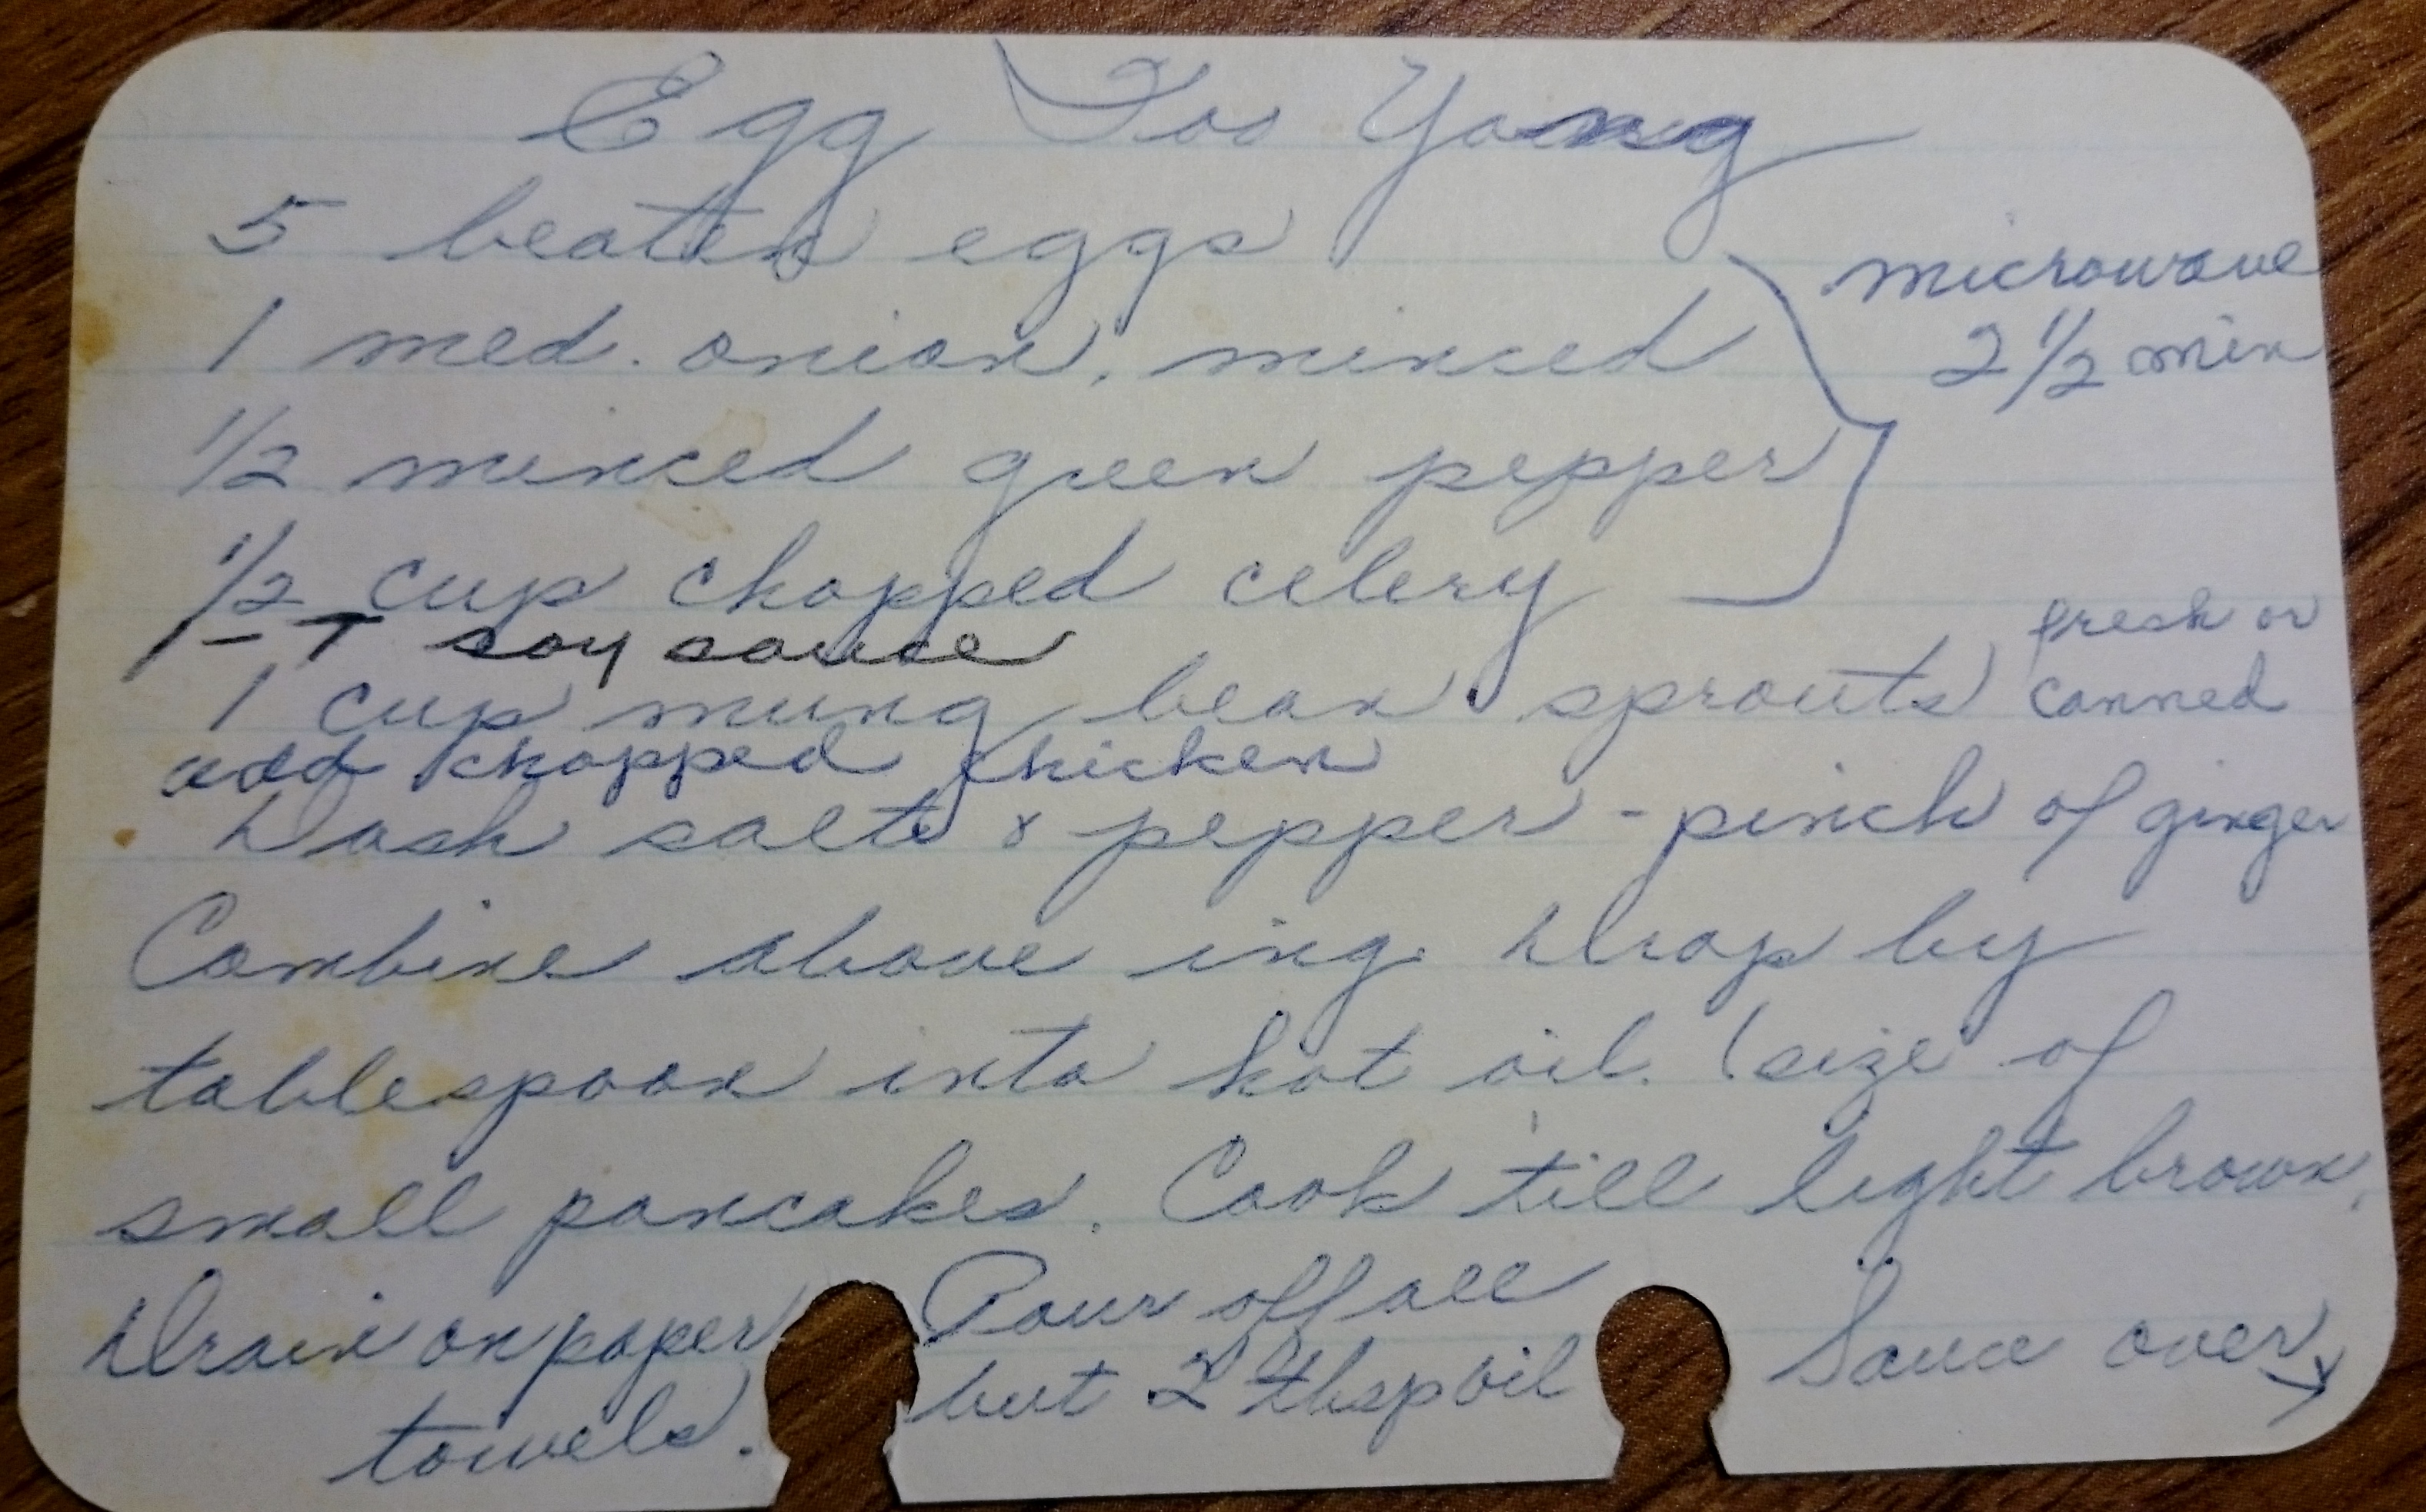 Egg Foo Yong
5 beaten eggs
1 med. onion, minced
microwave
2 1/2 min
1/2 minced green pepper
1/2 cup chopped celery
1 - T soy sauce
1 cup mung bean sprouts fresh or
canned
add chopped chicken
Dash salt & pepper - pinch of ginger
Combine above ing. Drop by
tablespoon into hot oil. (size of
small pancakes. Cook till light brown.
Drain on paper
towels.
Pour off all
but 2 tbsp oil
Sauce over →